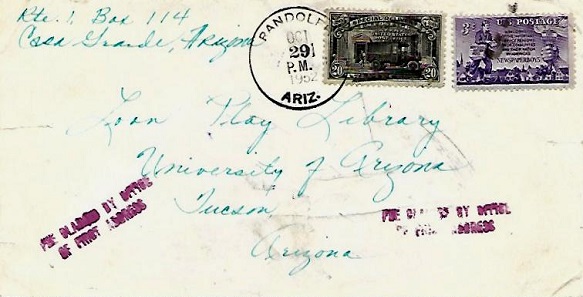 Rte. 1, Box 114
Casa Grande, Arizona
RANDOLPH
OCT
29
P.M.
1952
ARIZ.
SPECIAL DELIVERY
20 20
3¢ U.S. POSTAGE
NEWSPAPERBOYS
Loan Play Library
University of Arizona
Tucson,
Arizona
FEE CLAIMED BY OFFICE
OF FIRST ADDRESS
FEE CLAIMED BY OFFICE
OF FIRST ADDRESS